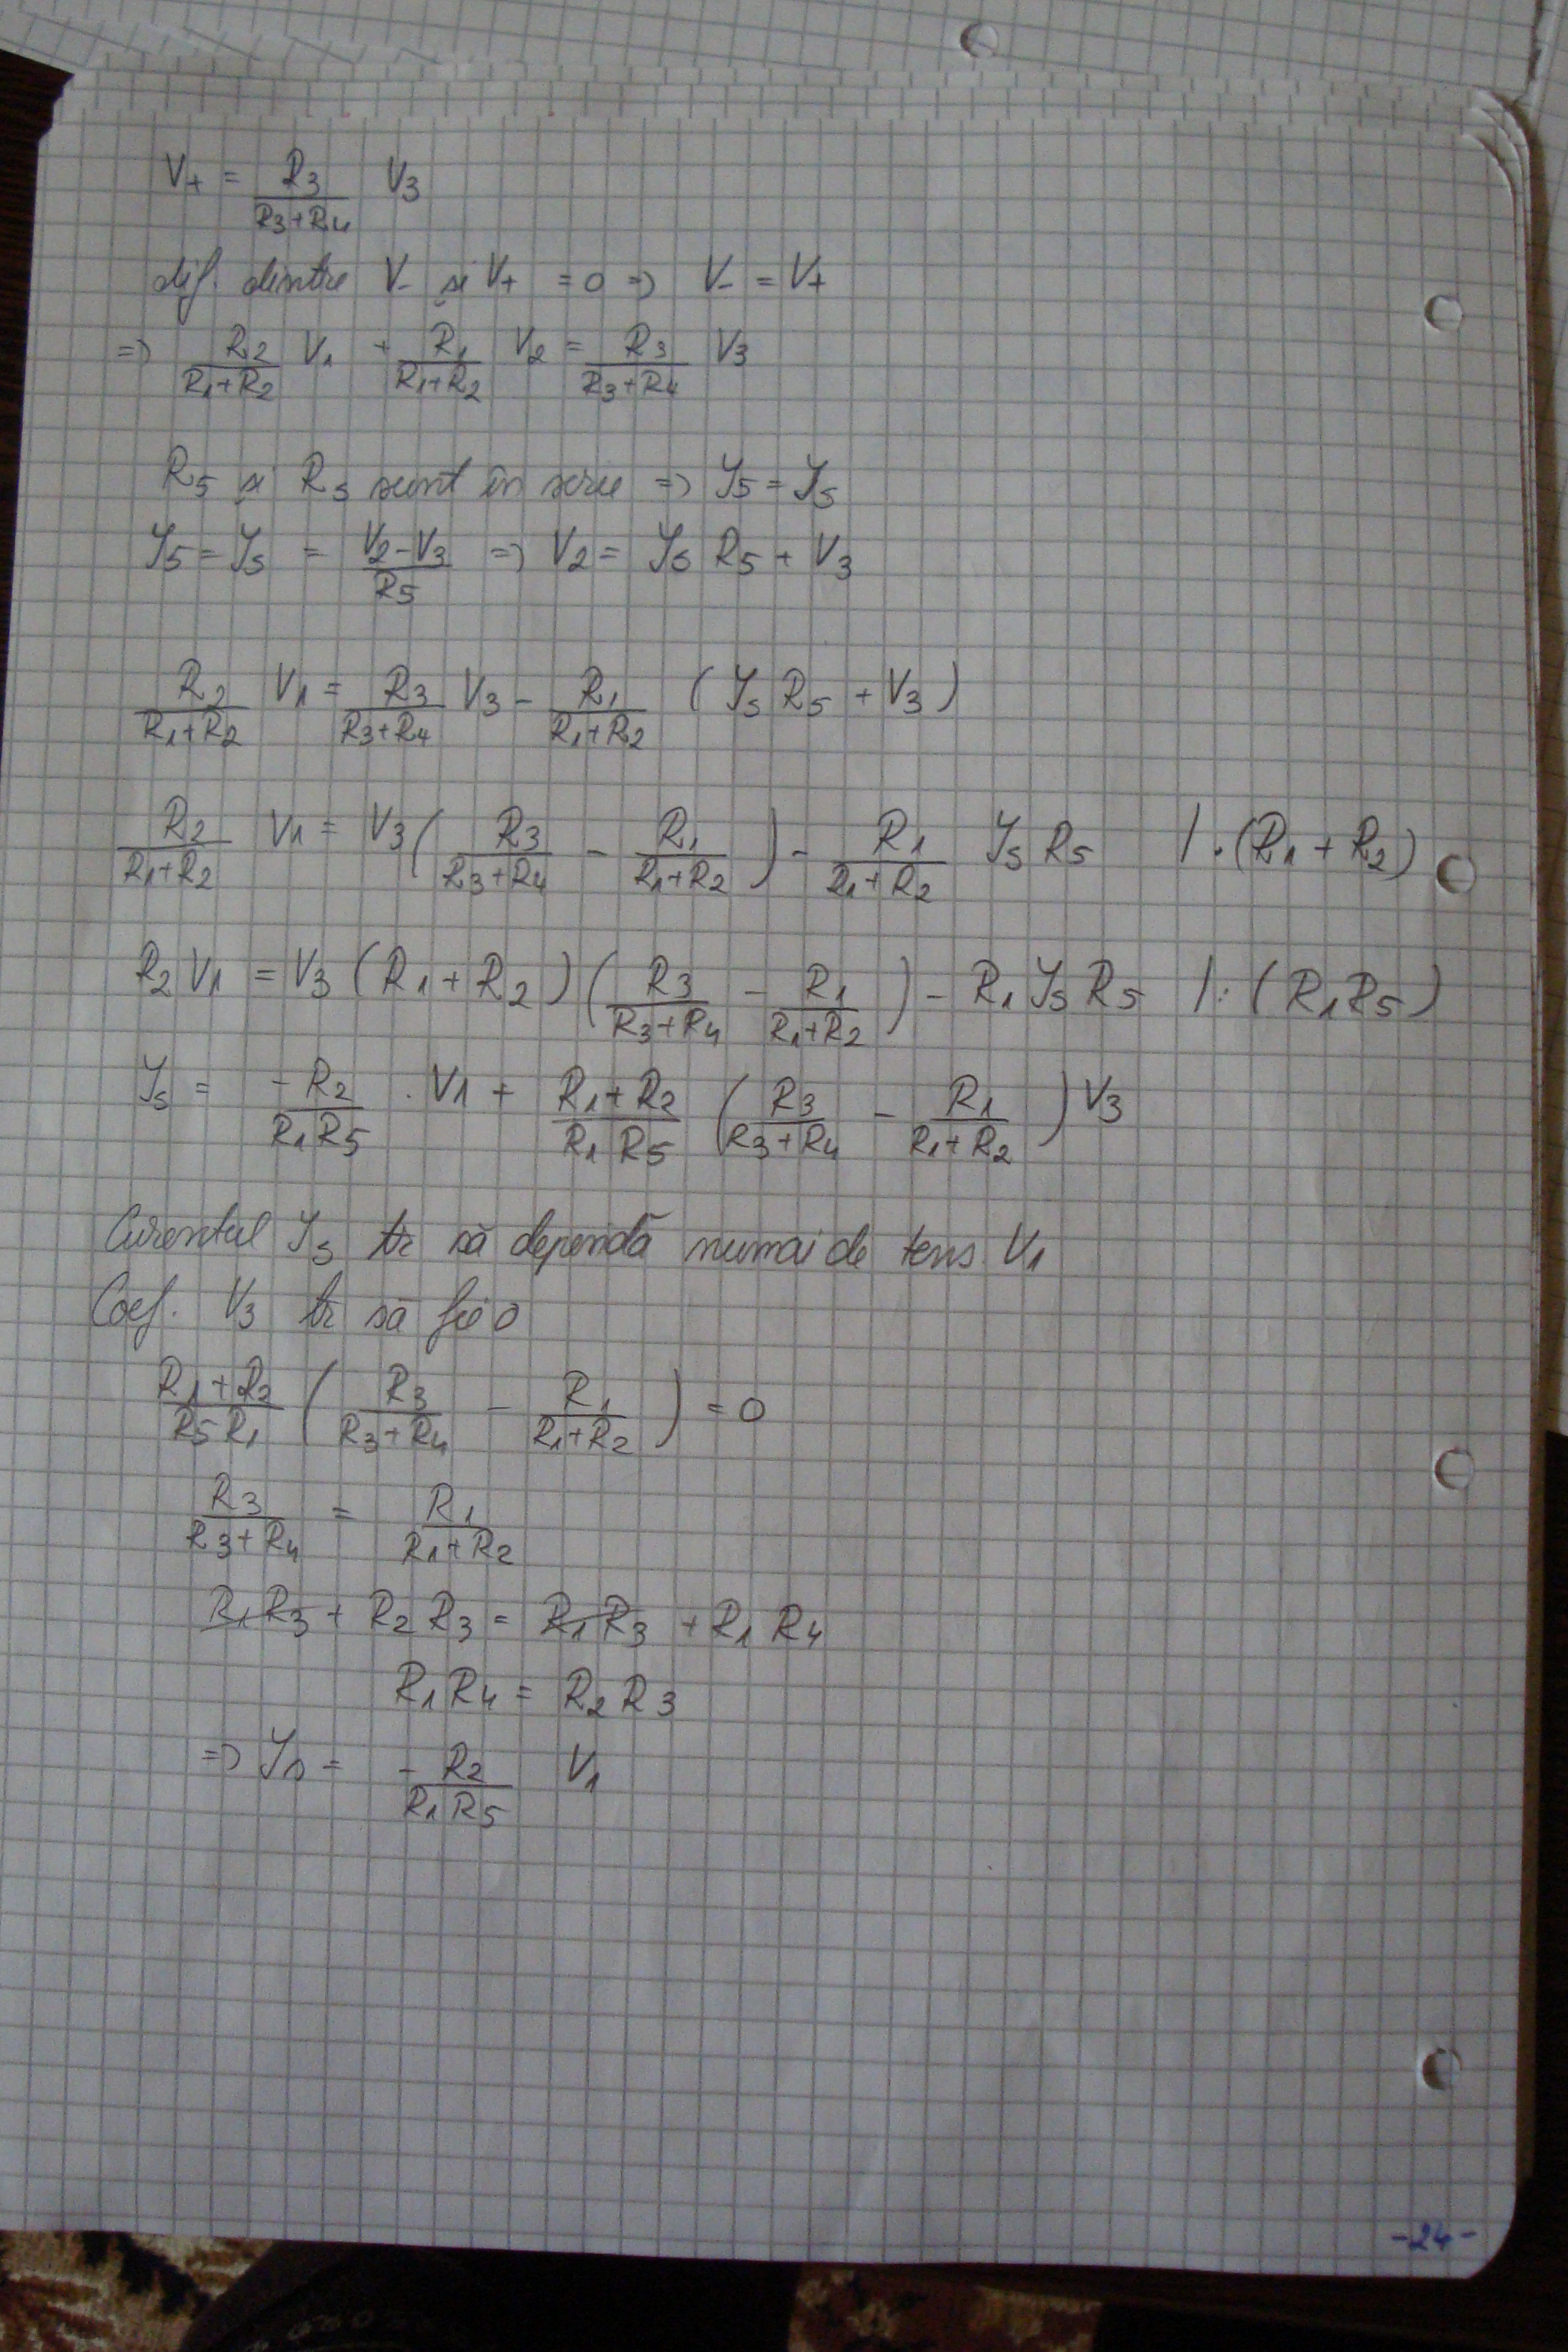 V+ = R3/(R3+R4) V3
dif. dintre V- si V+ = 0 => V- = V+
=> R2/(R1+R2) V1 + R1/(R1+R2) V2 = R3/(R3+R4) V3
R5 si Rs sunt în serie => I5 = Is
I5 = Is = (V2-V3)/R5 => V2 = Is R5 + V3
R2/(R1+R2) V1 = R3/(R3+R4) V3 - R1/(R1+R2) (Is R5 + V3)
R2/(R1+R2) V1 = V3 (R3/(R3+R4) - R1/(R1+R2)) - R1/(R1+R2) Is R5 | · (R1+R2)
R2 V1 = V3 (R1+R2) (R3/(R3+R4) - R1/(R1+R2)) - R1 Is R5 | : (R1R5)
Is = -R2/(R1R5) · V1 + (R1+R2)/(R1R5) (R3/(R3+R4) - R1/(R1+R2)) V3
Curentul Is tr să depindă numai de tens V1
Coef. V3 tr să fie 0
(R1+R2)/(R5R1) (R3/(R3+R4) - R1/(R1+R2)) = 0
R3/(R3+R4) = R1/(R1+R2)
R1R3 + R2R3 = R1R3 + R1R4
R1R4 = R2R3
=> Is = -R2/(R1R5) V1
-24-